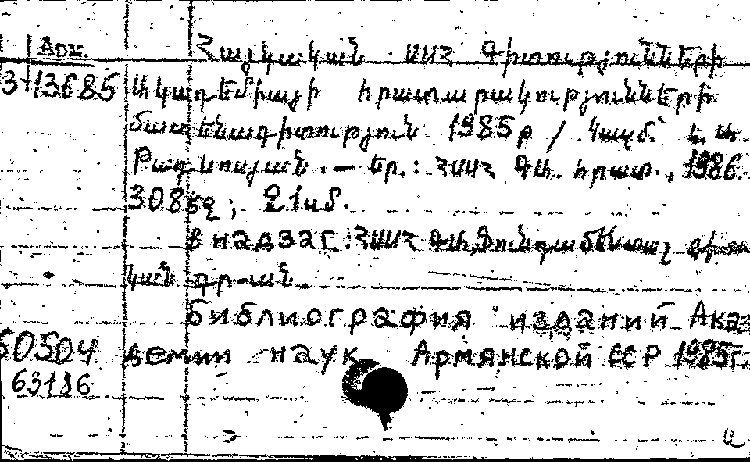 Арм.
Հայկական ՍՍՀ Գիտությունների
3-13685 Ակադեմիայի հրատարակությունների
մատենագիտություն 1985թ / Կազմ՝ Ե. Ա.
Բաղդասյան. — Եր.: ՀՍՍՀ ԳԱ հրատ., 1986.
308 էջ; 21 սմ.
В надзаг.: ՀՍՍՀ ԳԱ, Ֆունդամենտալ գիտա-
կան գր-ան.
Библиография изданий Ака
50504 демии наук Армянской ССР 1985г.
63186